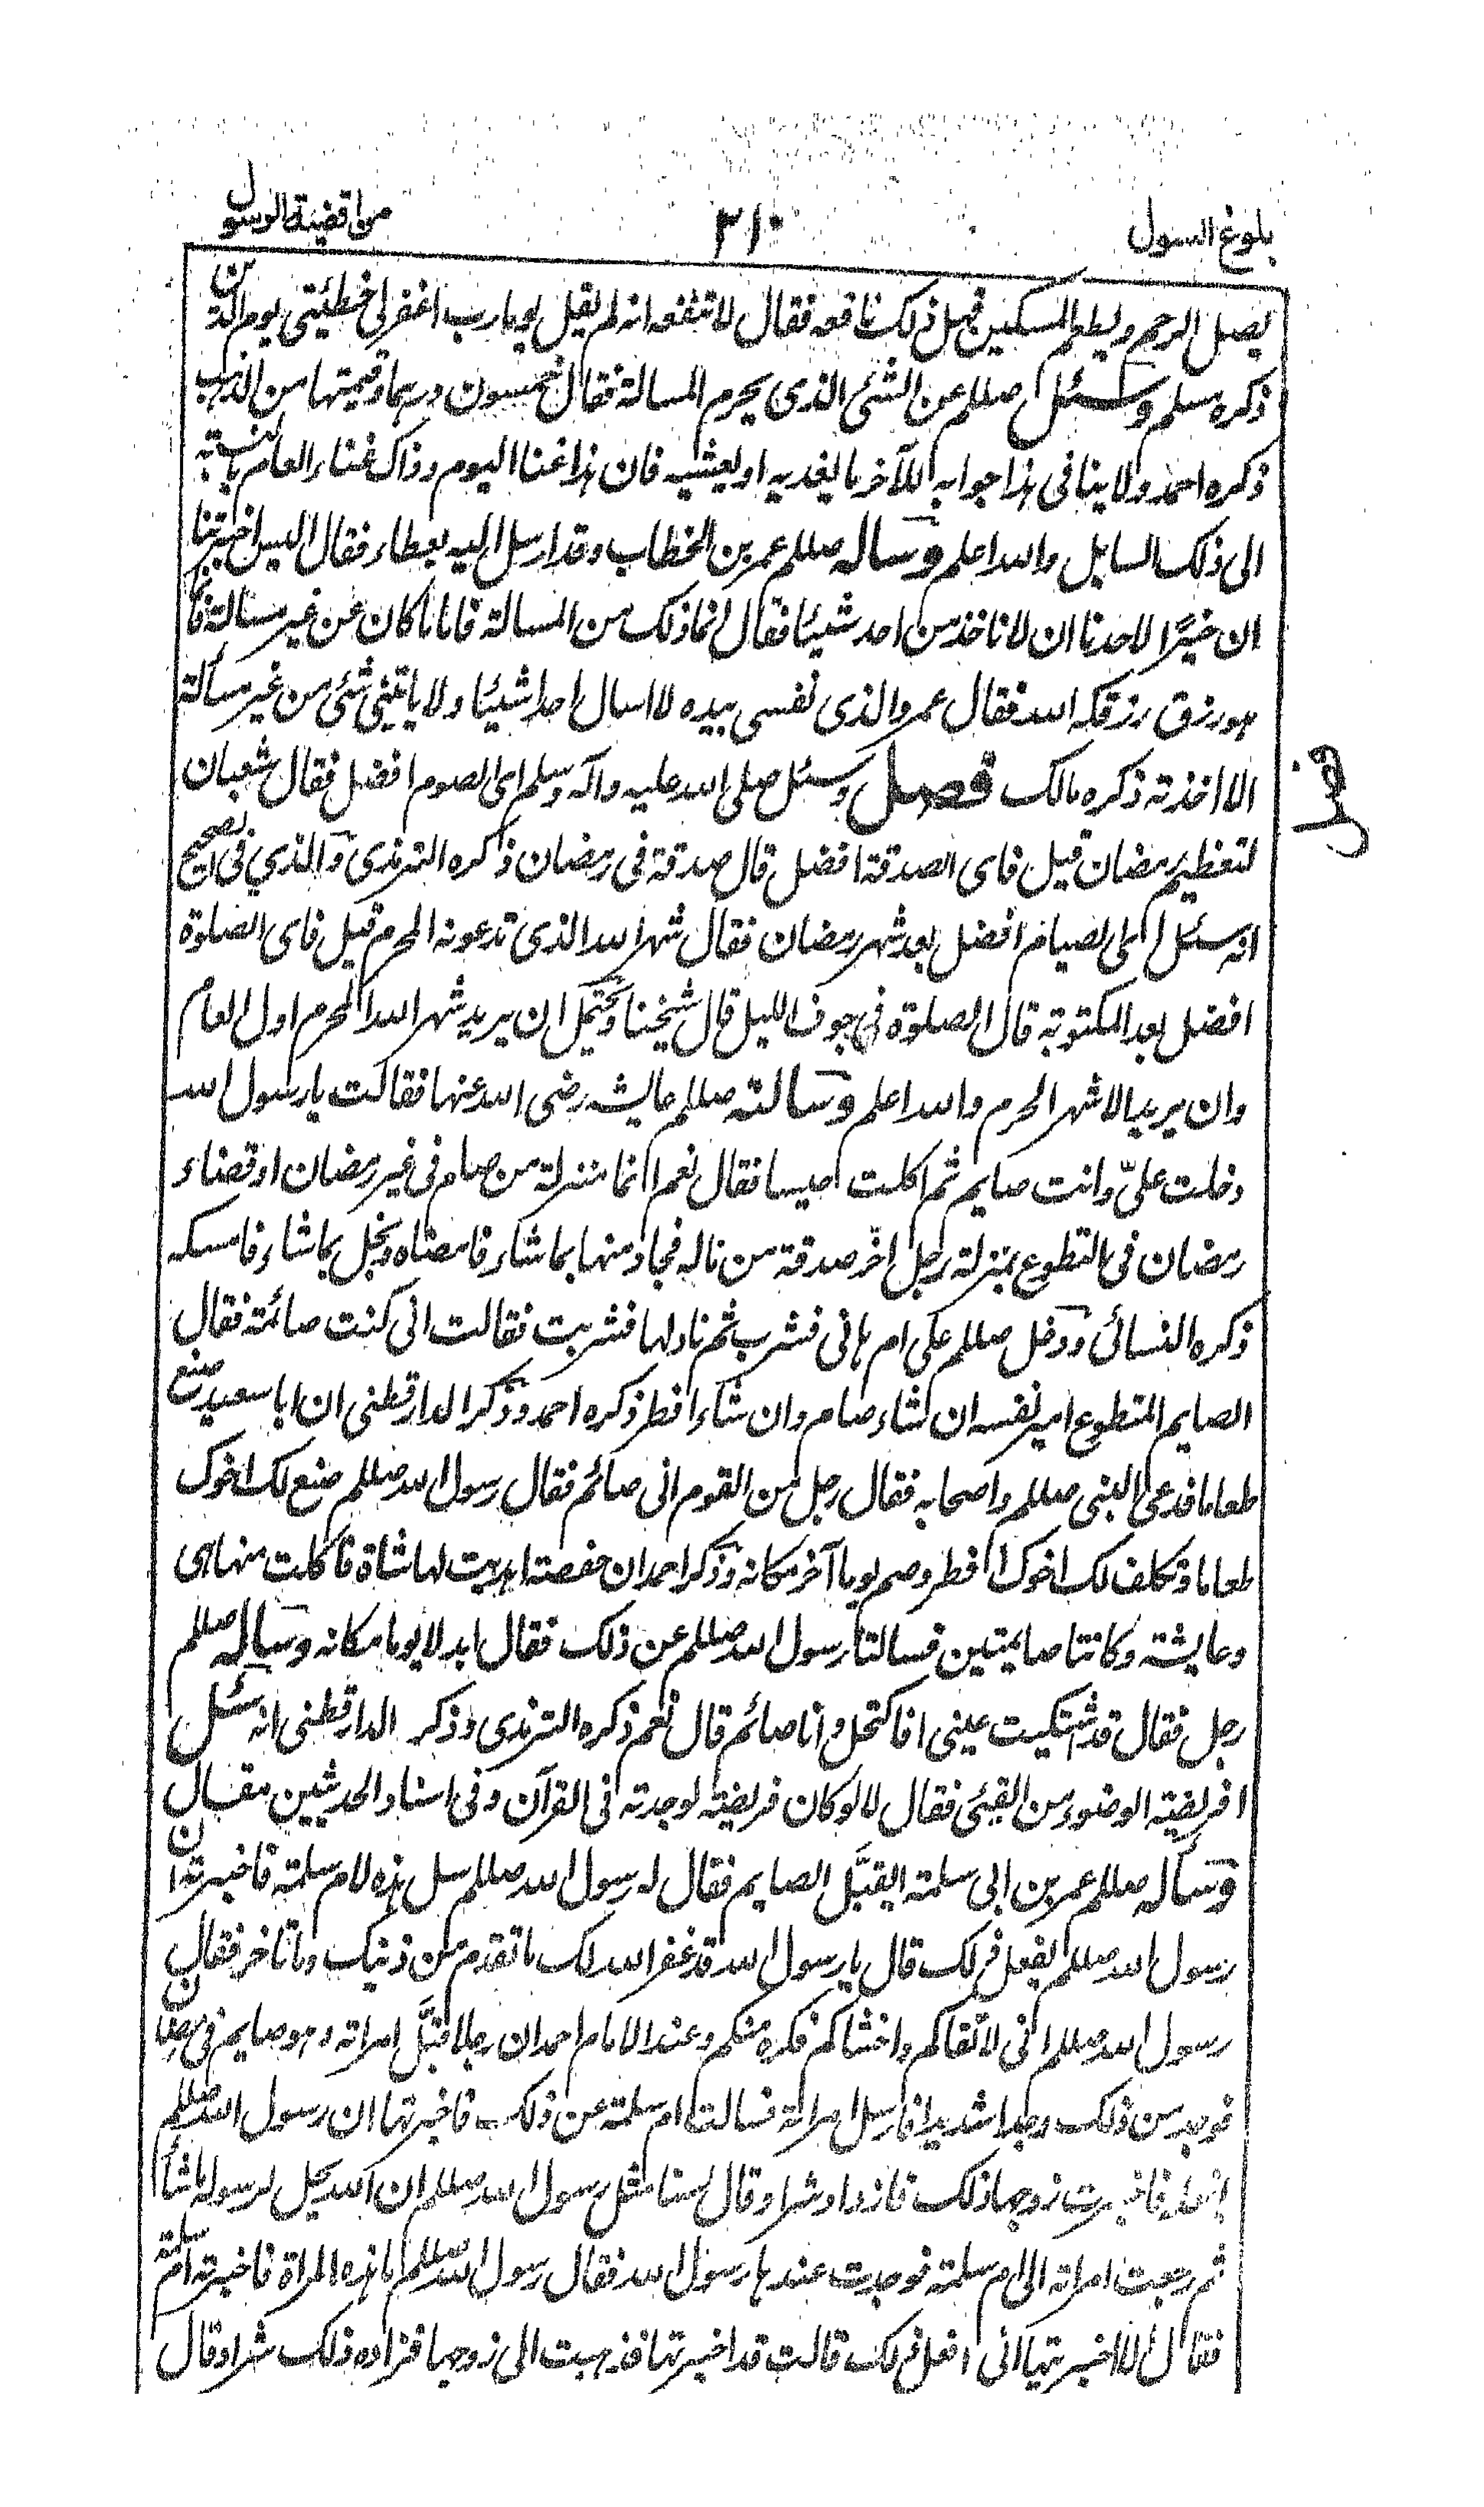 بلوغ السول
٣١٠
من اقضية الرسول
يصل الرحم ويطعم المسكين فهل ذلك نافعه فقال لا تنفعه انه لم يقل يوما رب اغفرلى خطيئتى يوم الدين
ذكره مسلم وسئل صللم عن الشئ الذى يحرم المسالة فقال خمسون درهما وقيمتها من الذهب
ذكره احمد ولا ينافى هذا جوابه للآخر ما يغديه او يعشيه فان هذا غنا اليوم وذاك غناء العام بالنسبة
الى ذلك السايل والله اعلم وساله صللم عمر بن الخطاب وقد ارسل اليه بعطاء فقال اليس اخبرتنا
ان خيرًا لاحدنا ان لا ناخذ من احد شيئا فقال انما ذلك من المسالة فاما ما كان عن غير مسالة فانما
هو رزق رزقكه الله فقال عمر والذى نفسى بيده لا اسال احدا شيئا ولا ياتينى شئ من غير مسألة
الا اخذته ذكره مالك فصل وسئل صلى الله عليه وآله وسلم اى الصوم افضل فقال شعبان
فصل
لتعظيم رمضان قيل فاى الصدقة افضل قال صدقة فى رمضان ذكره الترمذى والذي فى الصحيح
انه سئل اى الصيام افضل بعد شهر رمضان فقال شهر الله الذى تدعونه المحرم قيل فاى الصلوة
افضل بعد المكتوبة قال الصلوة فى جوف الليل قال شيخنا ويحتمل ان يريد شهر الله المحرم اول العام
وان يريد الاشهر الحرم والله اعلم وسالته صللم عايشه رضى الله عنها فقالت يا رسول الله
دخلت علىّ وانت صايم ثم اكلت حيسا فقال نعم انما منزلة من صام فى غير رمضان او قضاء
رمضان فى التطوع بمنزلة رجل اخرّ صدقة من ماله فجاد منها بما شاء فامضاه وبخل بما شاء فامسكه
ذكره النسائى ودخل صللم على ام هانى فشرب ثم ناولها فشربت فقالت انى كنت صائمة فقال
الصايم المتطوع امير نفسه ان شاء صام وان شاء افطر ذكره احمد وذكر الدارقطنى ان ابا سعيد صنع
طعاما فدعى النبى صللم واصحابه فقال رجل من القوم انى صائم فقال رسول الله صللم صنع لك اخوك
طعاما وتكلف لك اخوك افطر وصم يوما آخر مكانه وذكر احمد ان حفصة اهديت لها شاة فاكلت منها هى
وعايشة وكانتا صايمتين فسالتا رسول الله صللم عن ذلك فقال ابدلا يوما مكانه وساله صللم
رجل فقال قد اشتكيت عينى افاكتحل وانا صائم قال نعم ذكره الترمذى وذكر الدارقطنى انه سئل
افريضة الوضوء من القيئ فقال لا لو كان فريضة لوجدته فى القرآن وفى اسناد الحديثين مقال
وسأله صللم عمر بن ابى سلمة ايقبّل الصايم فقال له رسول الله صللم سل هذه لام سلمة فاخبرته ان
رسول الله صللم يفعل ذلك قال يا رسول الله قد غفر الله لك ما تقدم من ذنبك وما تاخر فقال
رسول الله صللم انى لاتقاكم واخشاكم منكم وعند الامام احمد ان رجلا قبَّل امراته وهو صايم فى رمضان
فوجد من ذلك وجدا شديدا فارسل امراته فسالت ام سلمة عن ذلك فاخبرتها ان رسول الله صللم
يفعله فاخبرت زوجها ذلك فازداد شرا وقال لسنا مثل رسول الله صللم ان الله يحل لرسوله ما شأ
ثم رجعت امراته الى ام سلمة فوجدت عندها رسول الله فقال رسول الله صللم ما هذه المراة فاخبرته ام سلمة
فقال الا اخبرتيها انى افعل ذلك قالت قد اخبرتها فذهبت الى زوجها فزاده ذلك شرا وقال